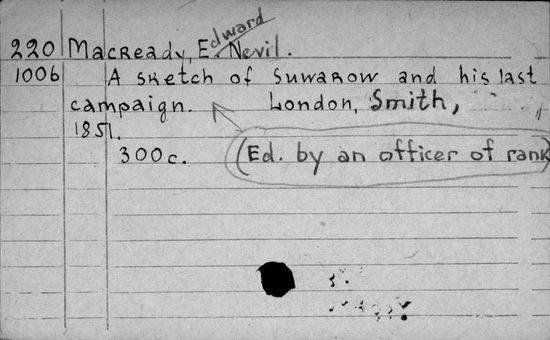 Edward
220 Macready, E. Nevil.
1006 A sketch of Suwarow and his last
campaign. London, Smith,
1851.
300c. (Ed. by an officer of rank)